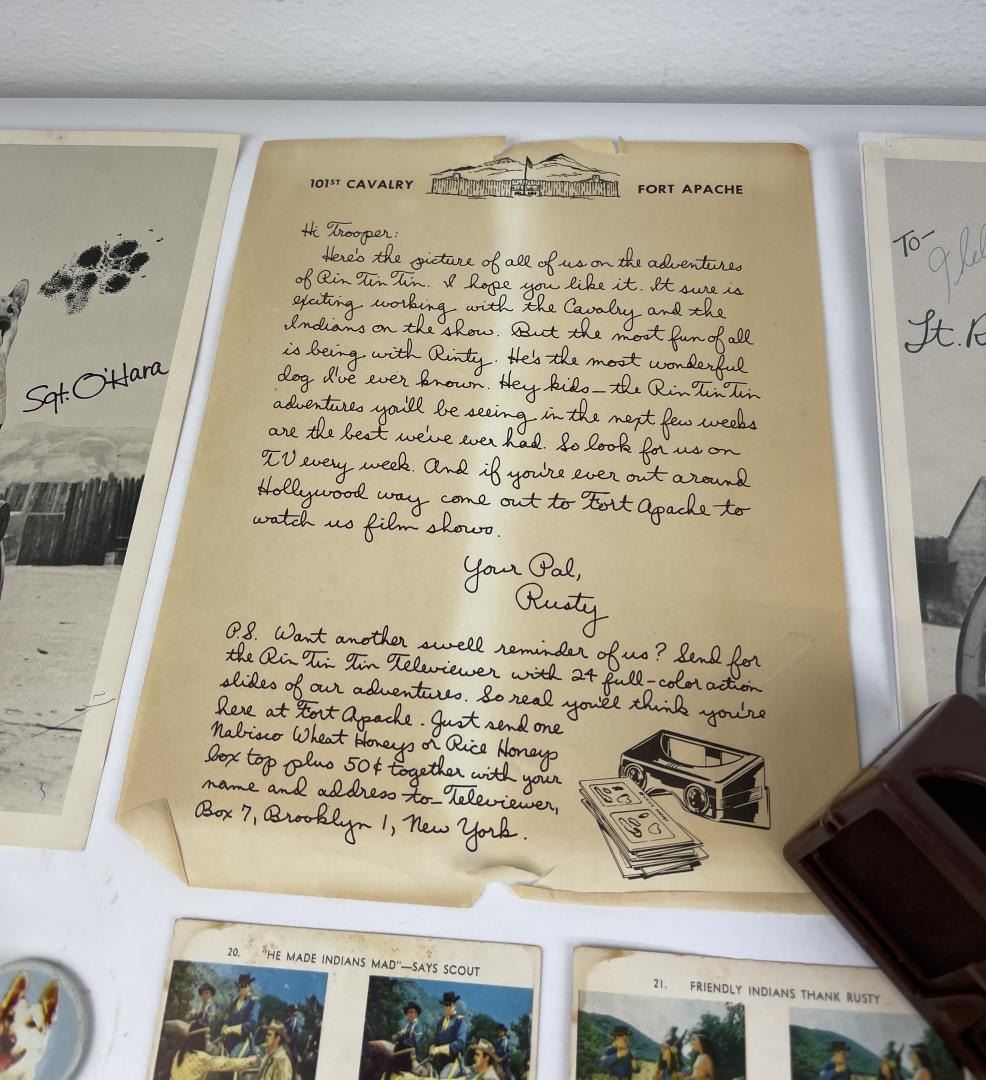 101ST CAVALRY
FORT APACHE
Hi Trooper:
Here's the picture of all of us on the adventures
of Rin Tin Tin. I hope you like it. It sure is
exciting working with the Cavalry and the
Indians on the show. But the most fun of all
is being with Rinty. He's the most wonderful
dog I've ever known. Hey kids — the Rin Tin Tin
adventures you'll be seeing in the next few weeks
are the best we've ever had. So look for us on
TV every week. And if you're ever out around
Hollywood way come out to Fort Apache to
watch us film shows.
Your Pal,
Rusty
P.S. Want another swell reminder of us? Send for
the Rin Tin Tin Televiewer with 24 full-color action
slides of our adventures. So real you'll think you're
here at Fort Apache. Just send one
Nabisco Wheat Honeys or Rice Honeys
box top plus 50¢ together with your
name and address to — Televiewer,
Box 7, Brooklyn 1, New York.
Sgt. O'Hara
To-
Lt. R
20. "HE MADE INDIANS MAD"—SAYS SCOUT
21. FRIENDLY INDIANS THANK RUSTY